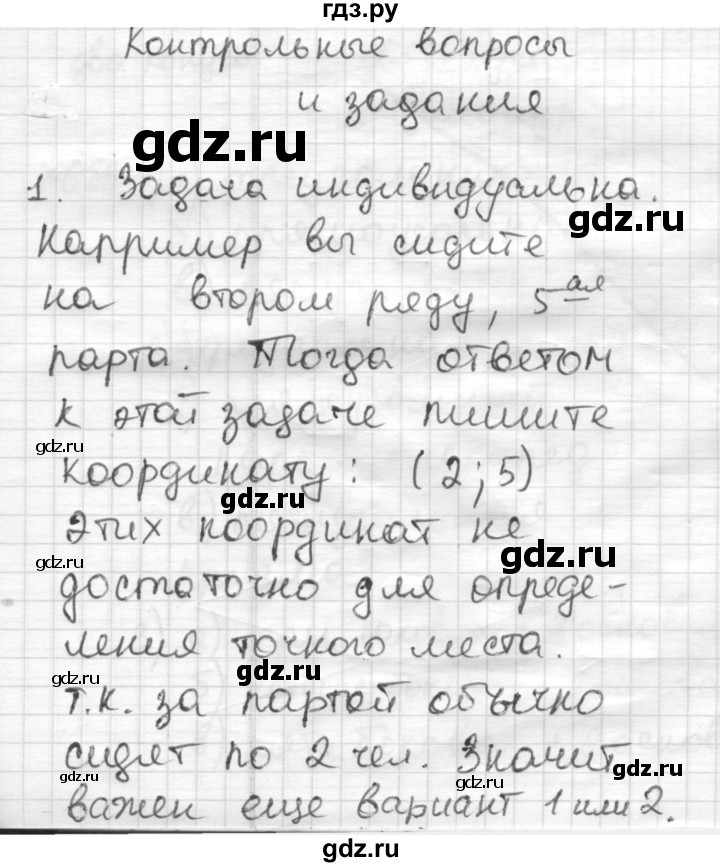 гдз.ру
Контрольные вопросы
и задания
gdz.ru
1. Задача индивидуальна.
gdz.ru
Например вы сидите
на втором ряду, 5ая
парта. Тогда ответом
к этой задаче пишите
gdz.ru
координату: (2; 5)
gdz.ru
Этих координат не
gdz.ru
gdz.ru
достаточно для опреде-
ления точного места.
gdz.ru
gdz.ru
т.к. за партой обычно
сидят по 2 чел. Значит
gdz.ru
gdz.ru
важен еще вариант 1 или 2.
gdz.ru